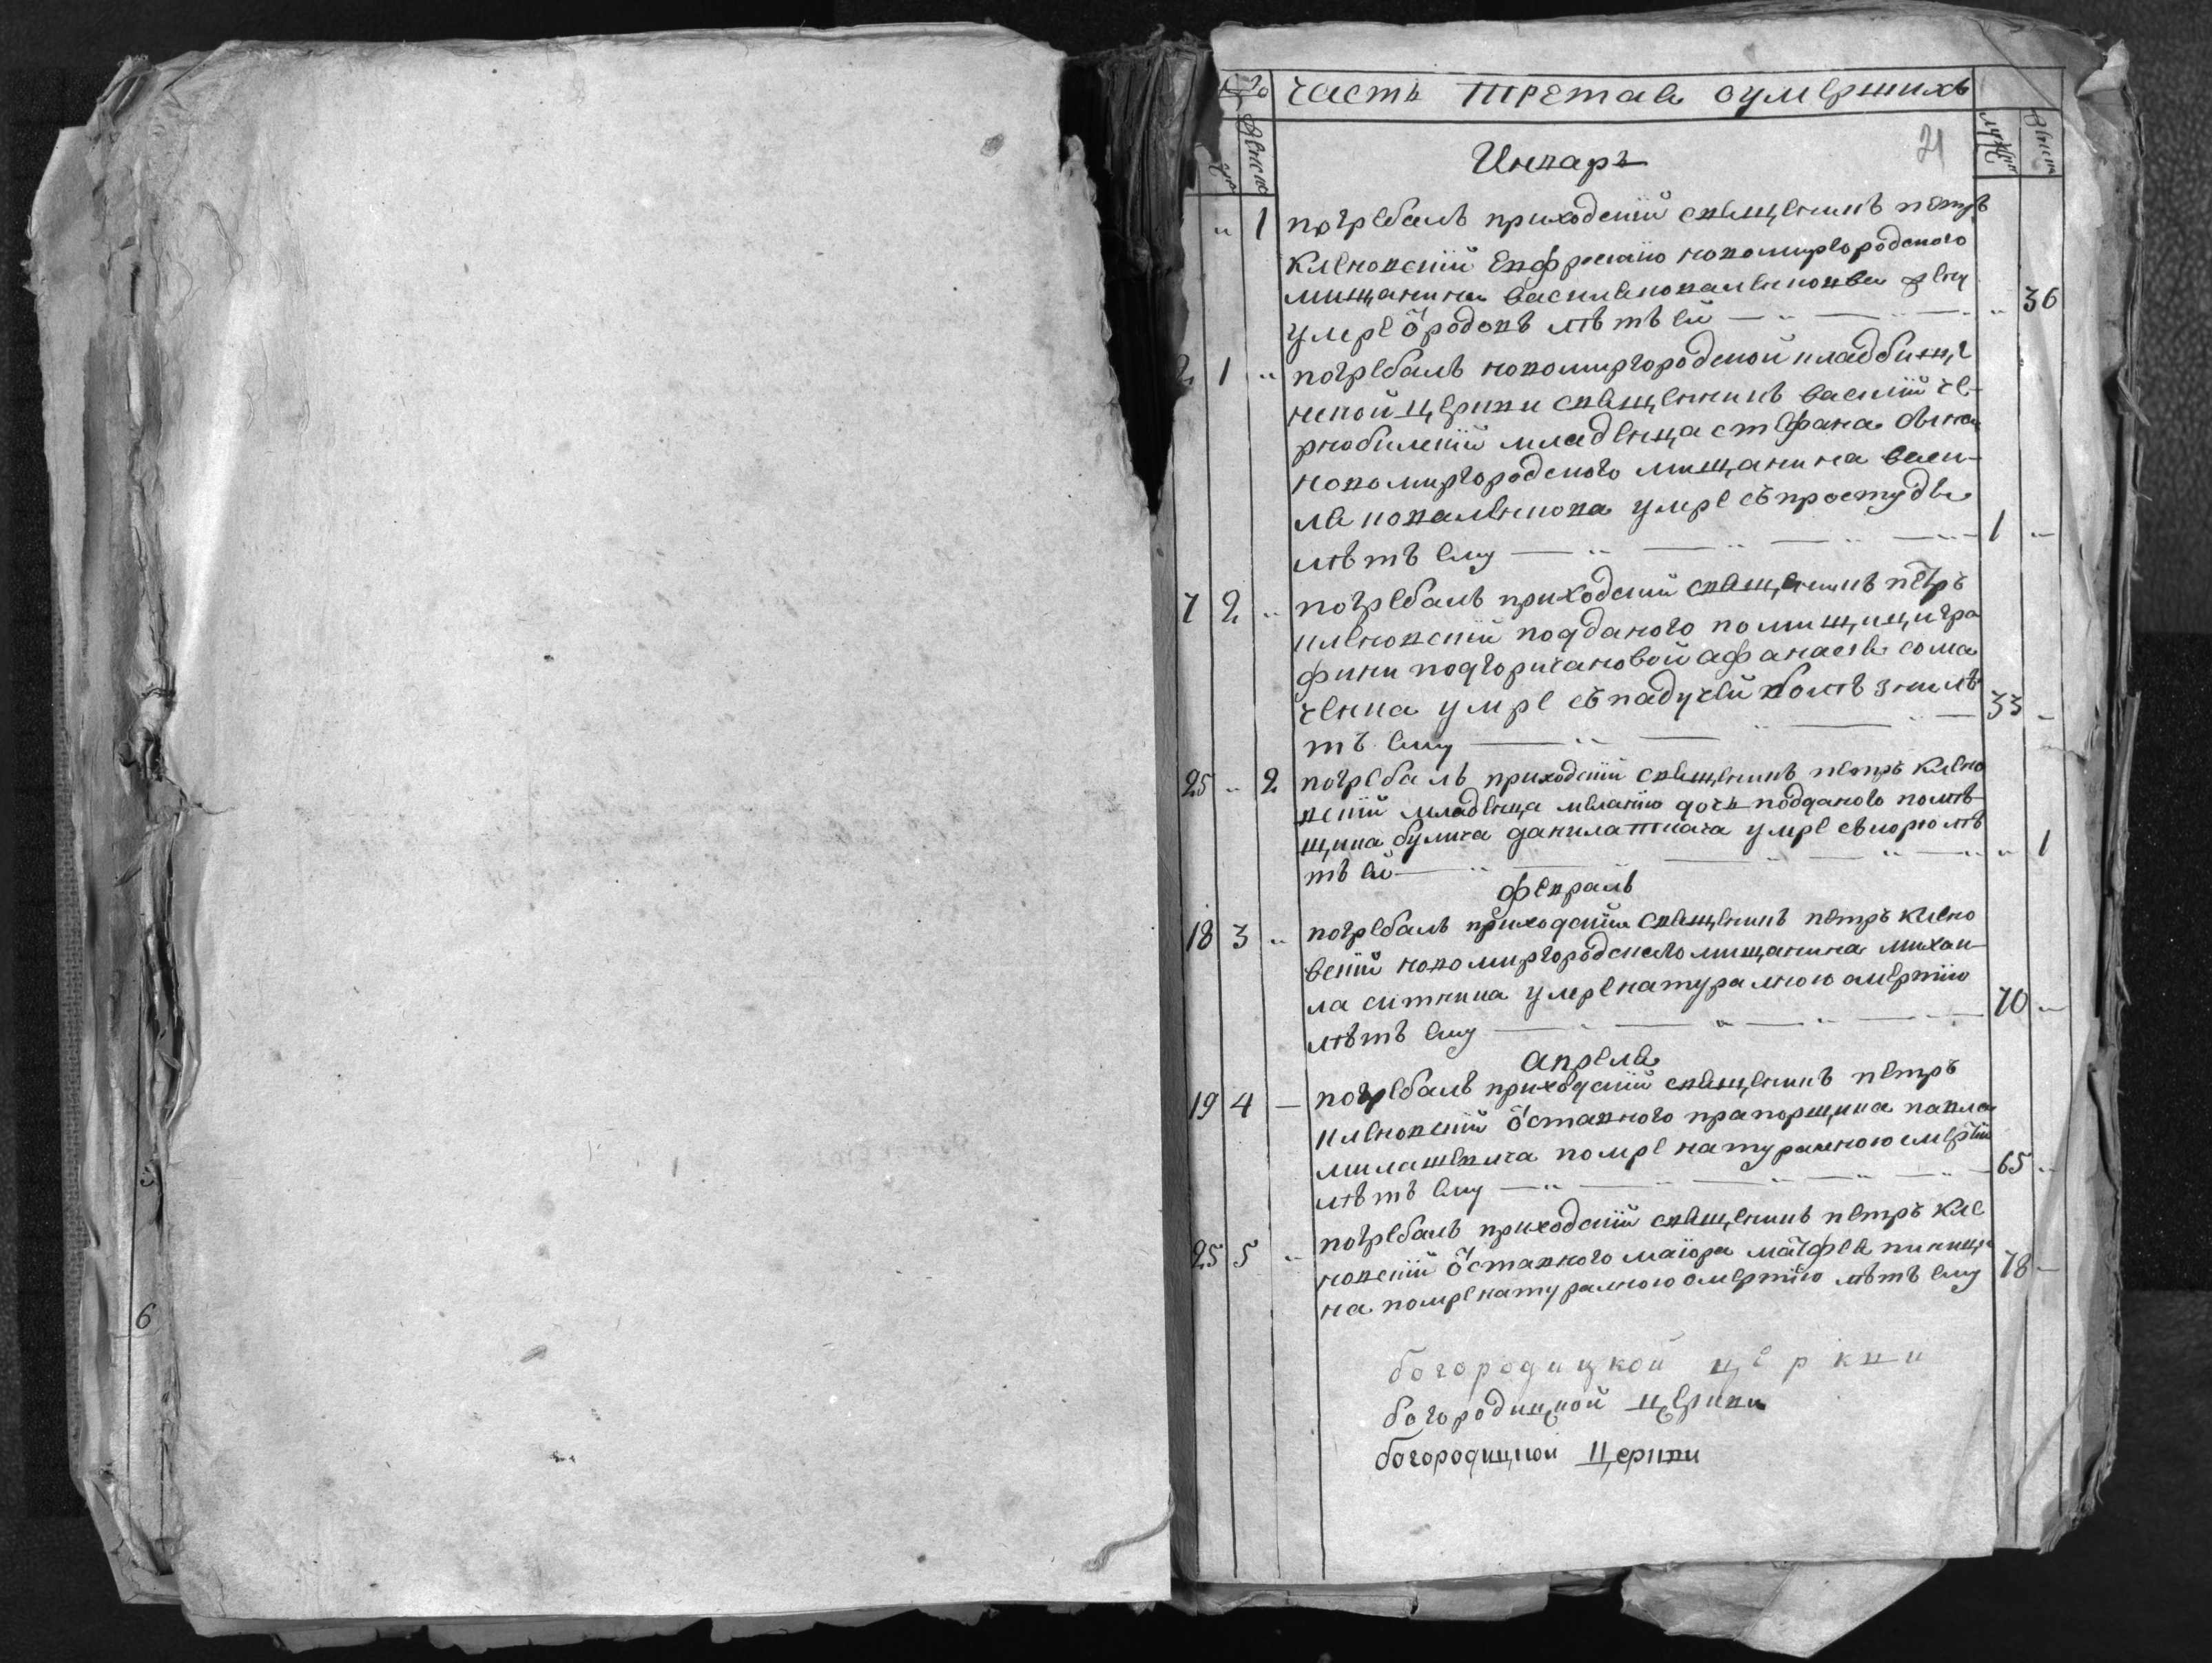 часть третая оумершихъ
женска
Инваръ
21
1 погребалъ приходскій священникъ петръ
кленовскій Евфросинію новомиргородского
мищанина василя коваленкова жену
умре ѿ родовъ лѣтъ ей 36
2 1 погребалъ новомиргородской кладбищ
ненской церкви священникъ василій че-
рнобилскій младенца стефана сина
новомиргородского мищанина васи-
ля коваленкова умре съ простуды
лѣтъ ему 1
7 2 погребалъ приходскій священникъ петръ
кленовскій подданого помищици гра
фини подгоричановой афанасія сома
ченка умре съ падучей
тъ ему 33
25 2 погребалъ приходскій священникъ петръ клено
вскій младенца меланію дочь подданого помѣ-
щика булича данила ткача умре съ корю лѣ
тъ ей 1
февраль
18 3 погребалъ приходскій священникъ петръ клено
вскій новомиргородского мищанина михаи-
ла ситника умре натуралною смертію
лѣтъ ему 70
апреля
19 4 погребалъ приходскій священникъ петръ
кленовскій ѿставного прапорщика павла
милашевича помре натуралною смертію
лѣтъ ему 65
25 5 погребалъ приходскій священникъ петръ кле
новскій ѿставного маіора матфея
на помре натуралною смертію лѣтъ ему 78
богородицкой церкви
богородицкой церкви
богородицкой церкви
6